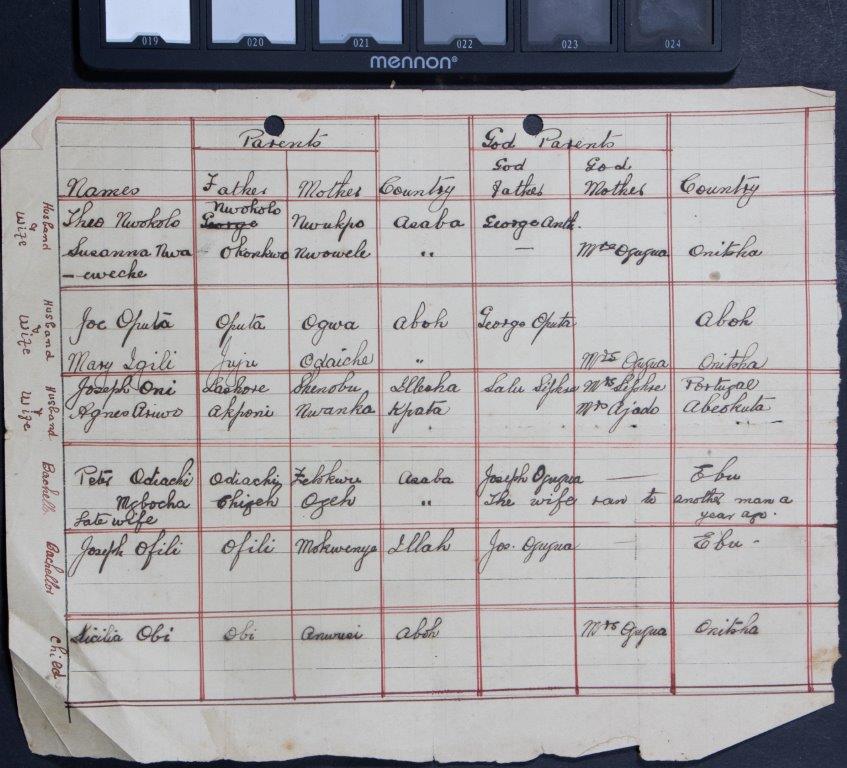 019 020 021 022 023 024
mennon®
Parents God Parents
Names Father Mother Country God Father God Mother Country
Husband & Wife
Theo Nwokolo Nwokolo George Nwukpo Asaba George Anth.
Susanna Nwa Okonkwo Nwowele " — Mrs Ogugua Onitsha
- ewecke
Husband & Wife
Joe Oputa Oputa Ogwa Aboh George Oputa Aboh
Mary Igili Juju Odaiche " Mrs Ogugua Onitsha
Husband & Wife
Joseph Oni Lashore Shenobu Illesha Salu Mrs Portugal
Agnes Aruwo Akponi Nwanka Kpata Mrs Ajado Abeokuta
Bachellr.
Peter Odiachi Odiachi Asaba Joseph Ogugua — Ebu
Mgbocha Chizeh Ogeh " The wife ran to another man a
Late wife year ago.
Bachellor
Joseph Ofili Ofili Mokwenye Illah Jos. Ogugua — Ebu -
Child
Sicilia Obi Obi Anwusi Aboh Mrs Ogugua Onitsha